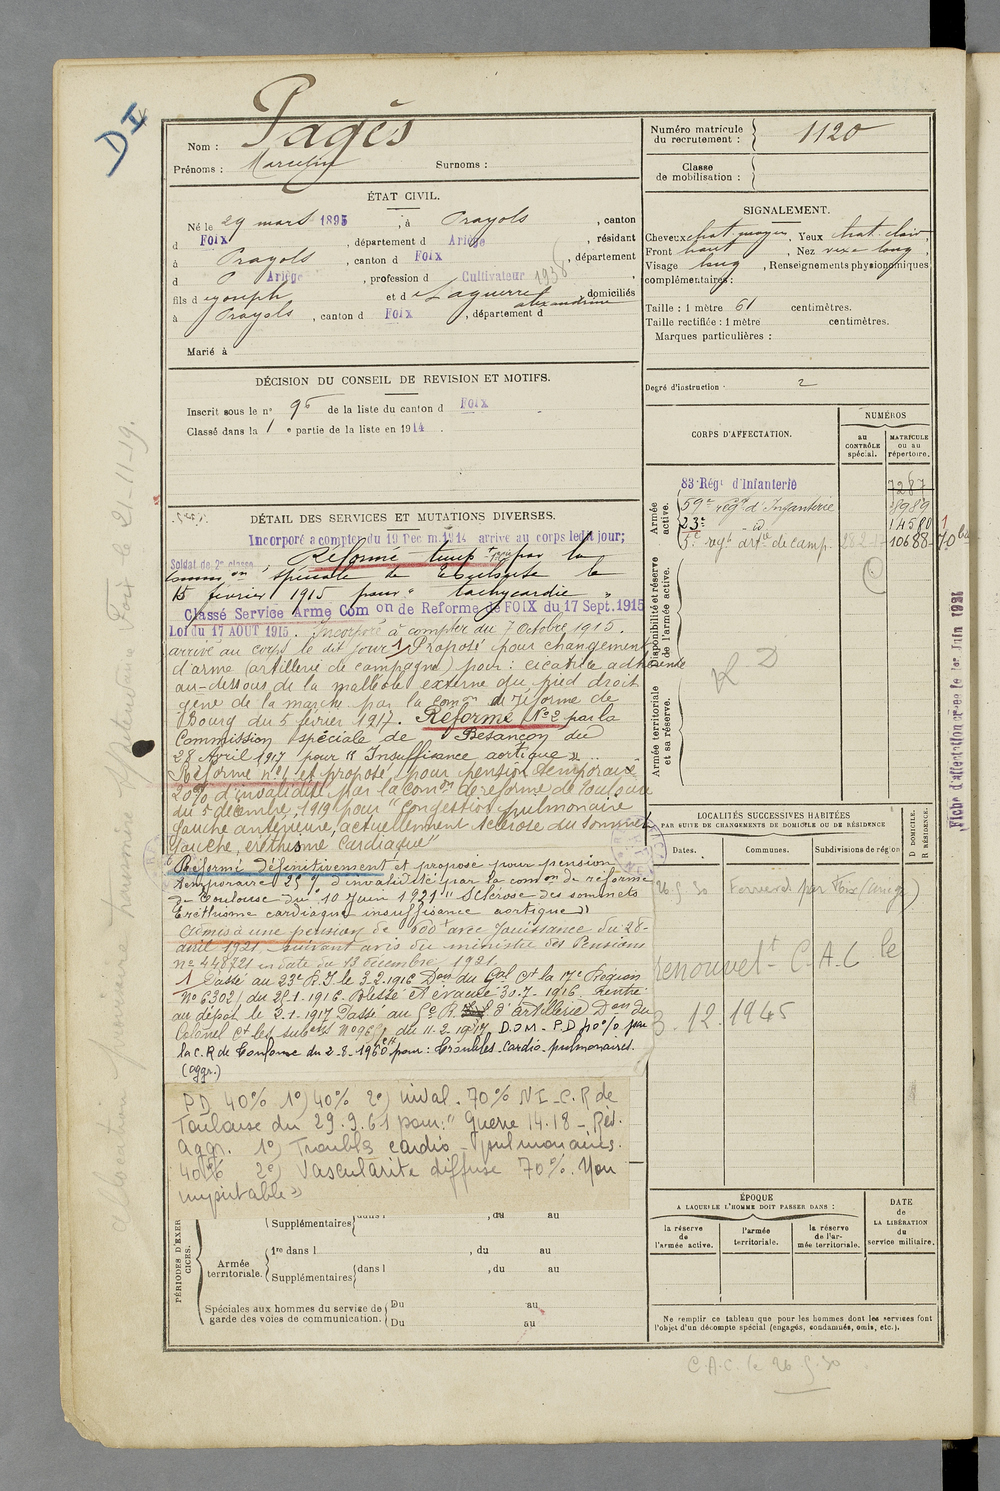 D I
Nom : Pagès
Prénoms : Marcelin Surnoms :
Numéro matricule du recrutement : 1120
Classe de mobilisation :
ÉTAT CIVIL.
Né le 29 mars 1895, à Prayols, canton
d Foix, département d Ariège, résidant
à Prayols, canton d Foix, département
d Ariège, profession d Cultivateur 1936
fils d e Joseph et d e Laguerre Alexandrine domiciliés
à Prayols, canton d Foix, département d
Marié à
SIGNALEMENT.
Cheveux chat. moyen, Yeux chat. clair,
Front haut, Nez long,
Visage long, Renseignements physionomiques
complémentaires :
Taille : 1 mètre 61 centimètres.
Taille rectifiée : 1 mètre centimètres.
Marques particulières :
Degré d'instruction · 2
DÉCISION DU CONSEIL DE REVISION ET MOTIFS.
Inscrit sous le n° 96 de la liste du canton d Foix
Classé dans la 1 e partie de la liste en 1914.
CORPS D'AFFECTATION.
NUMÉROS
au CONTRÔLE spécial.
MATRICULE ou au répertoire.
Armée active.
83 Régt d'Infanterie 7287
59e régt d'Infanterie 8989
23e id 14580
5e regt artie de camp. 10688
Disponibilité et réserve de l'armée active.
Armée territoriale et sa réserve.
DÉTAIL DES SERVICES ET MUTATIONS DIVERSES.
Incorporé à compter du 19 Dec m. 1914 arrivé au corps ledit jour;
Soldat de 2e classe
Réformé temp re par la
Comm on spéciale de Toulouse le
15 février 1915 pour " tachycardie "
Classé Service Armé Com on de Reforme de FOIX du 17 Sept. 1915
Loi du 17 AOUT 1915. Incorporé à compter du 7 Octobre 1915.
arrivé au corps le dit jour 1 Proposé pour changement
d'arme (artillerie de campagne) pour : cicatrice adhérente
au-dessous de la malléole externe du pied droit
gêne de la marche par la Comon de réforme de
Bourg du 5 février 1917. Réformé No 2 par la
Commission spéciale de Besançon du
28 Avril 1917 pour « Insuffisance aortique »
Réformé n°1 et proposé pour pension temporaire
20% d'invalidité par la Comon de réforme de Toulouse
du 5 décembre 1919 pour "congestion pulmonaire
gauche antérieure, actuellement sclérose du sommet
gauche, éréthisme cardiaque"
Réformé définitivement et proposé pour pension
temporaire 25% d'invalidité par la comon de réforme
de Toulouse du 10 Juin 1921 "Sclérose des sommets
Eréthisme cardiaque insuffisance aortique"
Admis à une pension de 600 f avec jouissance du 28-
avril 1921, suivant avis du ministre des Pensions
n° 448721 en date du 13 décembre 1921.
1 Passé au 23e R.I le 3-2-1916 Don du Gal Ct la 17e Région
No 6302/ du 25-1-1916. Blessé et évacué 30-7-1916. Rentré
au dépôt le 3-1-1917 Passé au 5e R. d'Artillerie Don du
Colonel Ct les subons No 96 du 11-2-1917. D.I.M. - P.D 40% par
la C.R de Toulouse du 2-8-1960 pour : Troubles cardio-pulmonaires.
(aggr.)
PD 40% 1°) 40% 2°) inval. 70% N I - C.R de
Toulouse du 29.9.61 pour : " Guerre 14.18 - Rév.
Aggr. 1°) Troubles cardio-pulmonaires.
40% 2°) Vascularite diffuse 70%. Non
imputable »
LOCALITÉS SUCCESSIVES HABITÉES
PAR SUITE DE CHANGEMENTS DE DOMICILE OU DE RÉSIDENCE
Dates. Communes. Subdivisions de région
D DOMICILE.
R RÉSIDENCE.
26-5-30 Ferrières par Foix (Ariège)
renouvelt C.A.C le
3.12.1945
Fiche d'affectation créée le 1er Juin 1921
PÉRIODES D'EXERCICES.
Supplémentaires dans l , du au
Armée territoriale. 1re dans l , du au
Supplémentaires dans l , du au
Spéciales aux hommes du service de garde des voies de communication. Du au
Du au
ÉPOQUE
A LAQUELLE L'HOMME DOIT PASSER DANS :
la réserve de l'armée active.
l'armée territoriale.
la réserve de l'armée territoriale.
DATE DE LA LIBÉRATION du service militaire.
Ne remplir ce tableau que pour les hommes dont les services font
l'objet d'un décompte spécial (engagés, condamnés, omis, etc.).
C.A.C. le 26-5-30